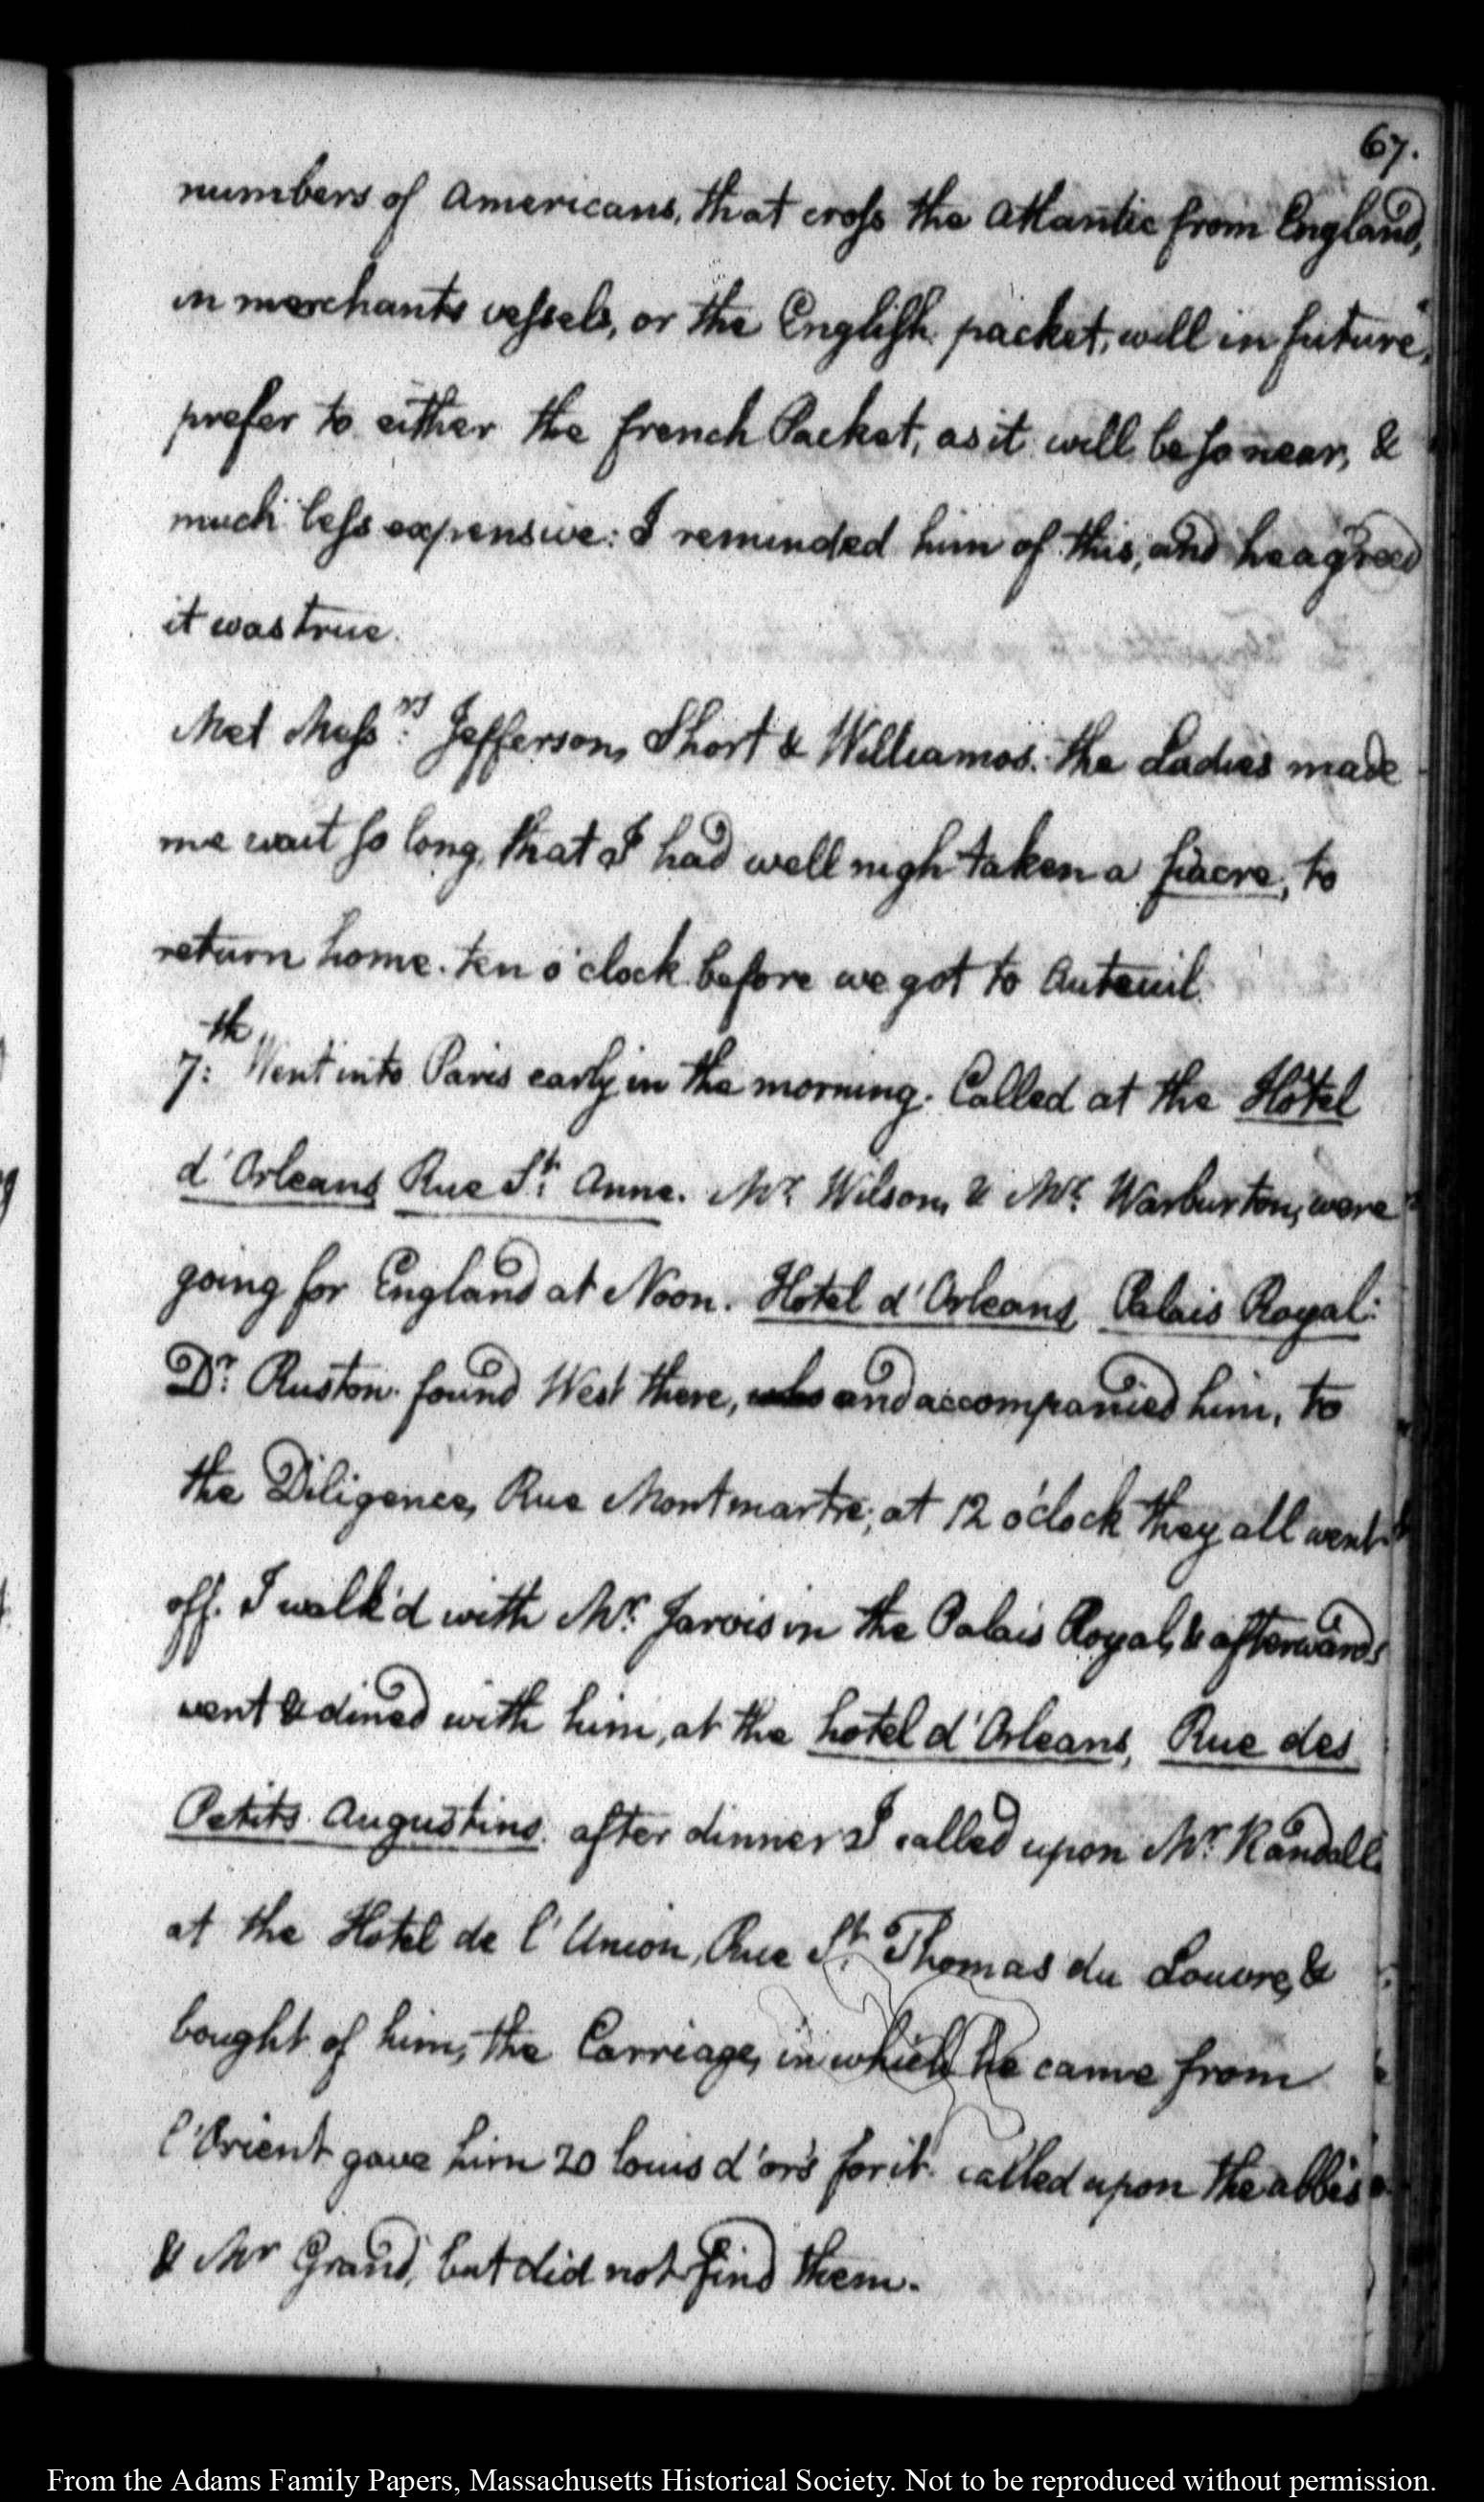 67.
numbers of Americans, that cross the Atlantic from England,
in merchants vessels, or the English packet, will in future,
prefer to either the french Packet, as it will be so near, &
much less expensive: I reminded him of this, and he agreed
it was true.
Met Messrs. Jefferson, Short & Williamos. the Ladies made
me wait so long, that I had well nigh taken a fiacre, to
return home. ten o'clock before we got to Auteuil.
7:th Went into Paris early in the morning. Called at the Hôtel
d'Orleans Rue St. Anne. Mr. Wilson, & Mr. Warburton, were
going for England at Noon. Hotel d'Orleans Palais Royal:
Dr. Ruston. found West there, who and accompanied him, to
the Diligence, Rue Montmartre; at 12 o'clock they all went
off. I walk'd with Mr. Jarvis in the Palais Royal, & afterwards
went & dined with him, at the hotel d'Orleans, Rue des
Petits Augustins. after dinner I called upon Mr. Randall
at the Hotel de l'Union, Rue St. Thomas du Louvre, &
bought of him, the Carriage, in which he came from
l'Orient gave him 20 louis d'ors for it. called upon the abbés
& Mr Grand, but did not find them.
From the Adams Family Papers, Massachusetts Historical Society. Not to be reproduced without permission.